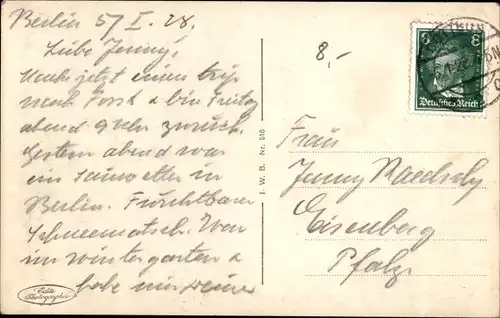 Berlin 5/ I. 28.
Liebe Jenny!
Mache jetzt einen trip
nach Forst & bin Freitag
abend 9 Uhr zurück.
Gestern abend war
ein Sauwetter in
Berlin. Furchtbarer
Schneematsch. War
im Wintergarten &
habe mir
8,-
8 8
Deutsches Reich
Frau
Jenny
Eisenberg
Pfalz
I. W. B. Nr. 616
Echte
Photographie